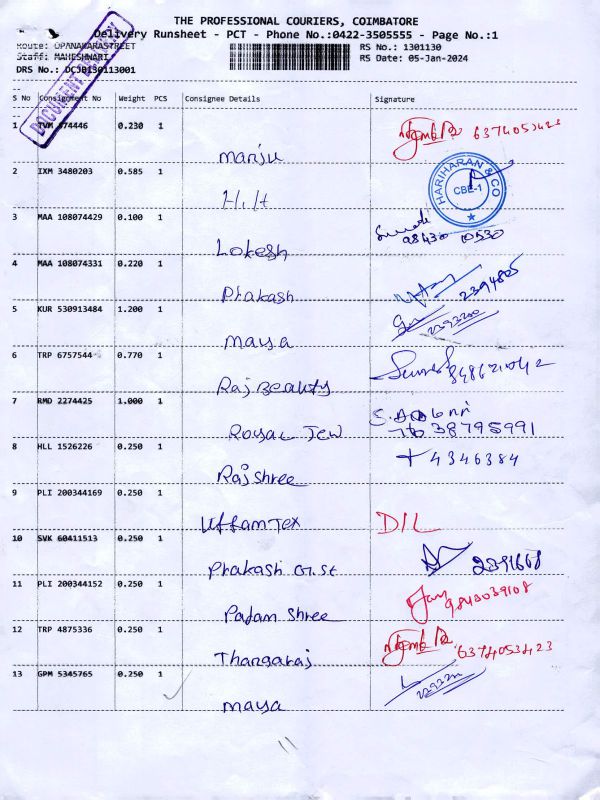 THE PROFESSIONAL COURIERS, COIMBATORE
Delivery Runsheet - PCT - Phone No.:0422-3505555 - Page No.:1
Route: OPANAKARASTREET RS No.: 1301130
Staff: MAHESHWARI RS Date: 05-Jan-2024
DRS No.: DCJ0130113001
DOCUMENT DELIVERY
S No Consignment No Weight PCS Consignee Details Signature
1 TVM 374446 0.230 1
Manju
2 IXM 3480203 0.585 1
Hilt
HARIHARAN & CO
CBE-1
3 MAA 108074429 0.100 1
98430 10530
Lokesh
4 MAA 108074331 0.220 1
Prakash
2394805
5 KUR 530913484 1.200 1
Maya
6 TRP 6757544 0.770 1
Raj Beauty
7 RMD 2274425 1.000 1
Royal Jew
7638795991
8 HLL 1526226 0.250 1 4346384
Raj shree
9 PLI 200344169 0.250 1
Uttam Tex DIL
10 SVK 60411513 0.250 1
Prakash G.St
11 PLI 200344152 0.250 1
Padam Shree
12 TRP 4875336 0.250 1
6374053423
Thangaraj
13 GPM 5345765 0.250 1
Maya